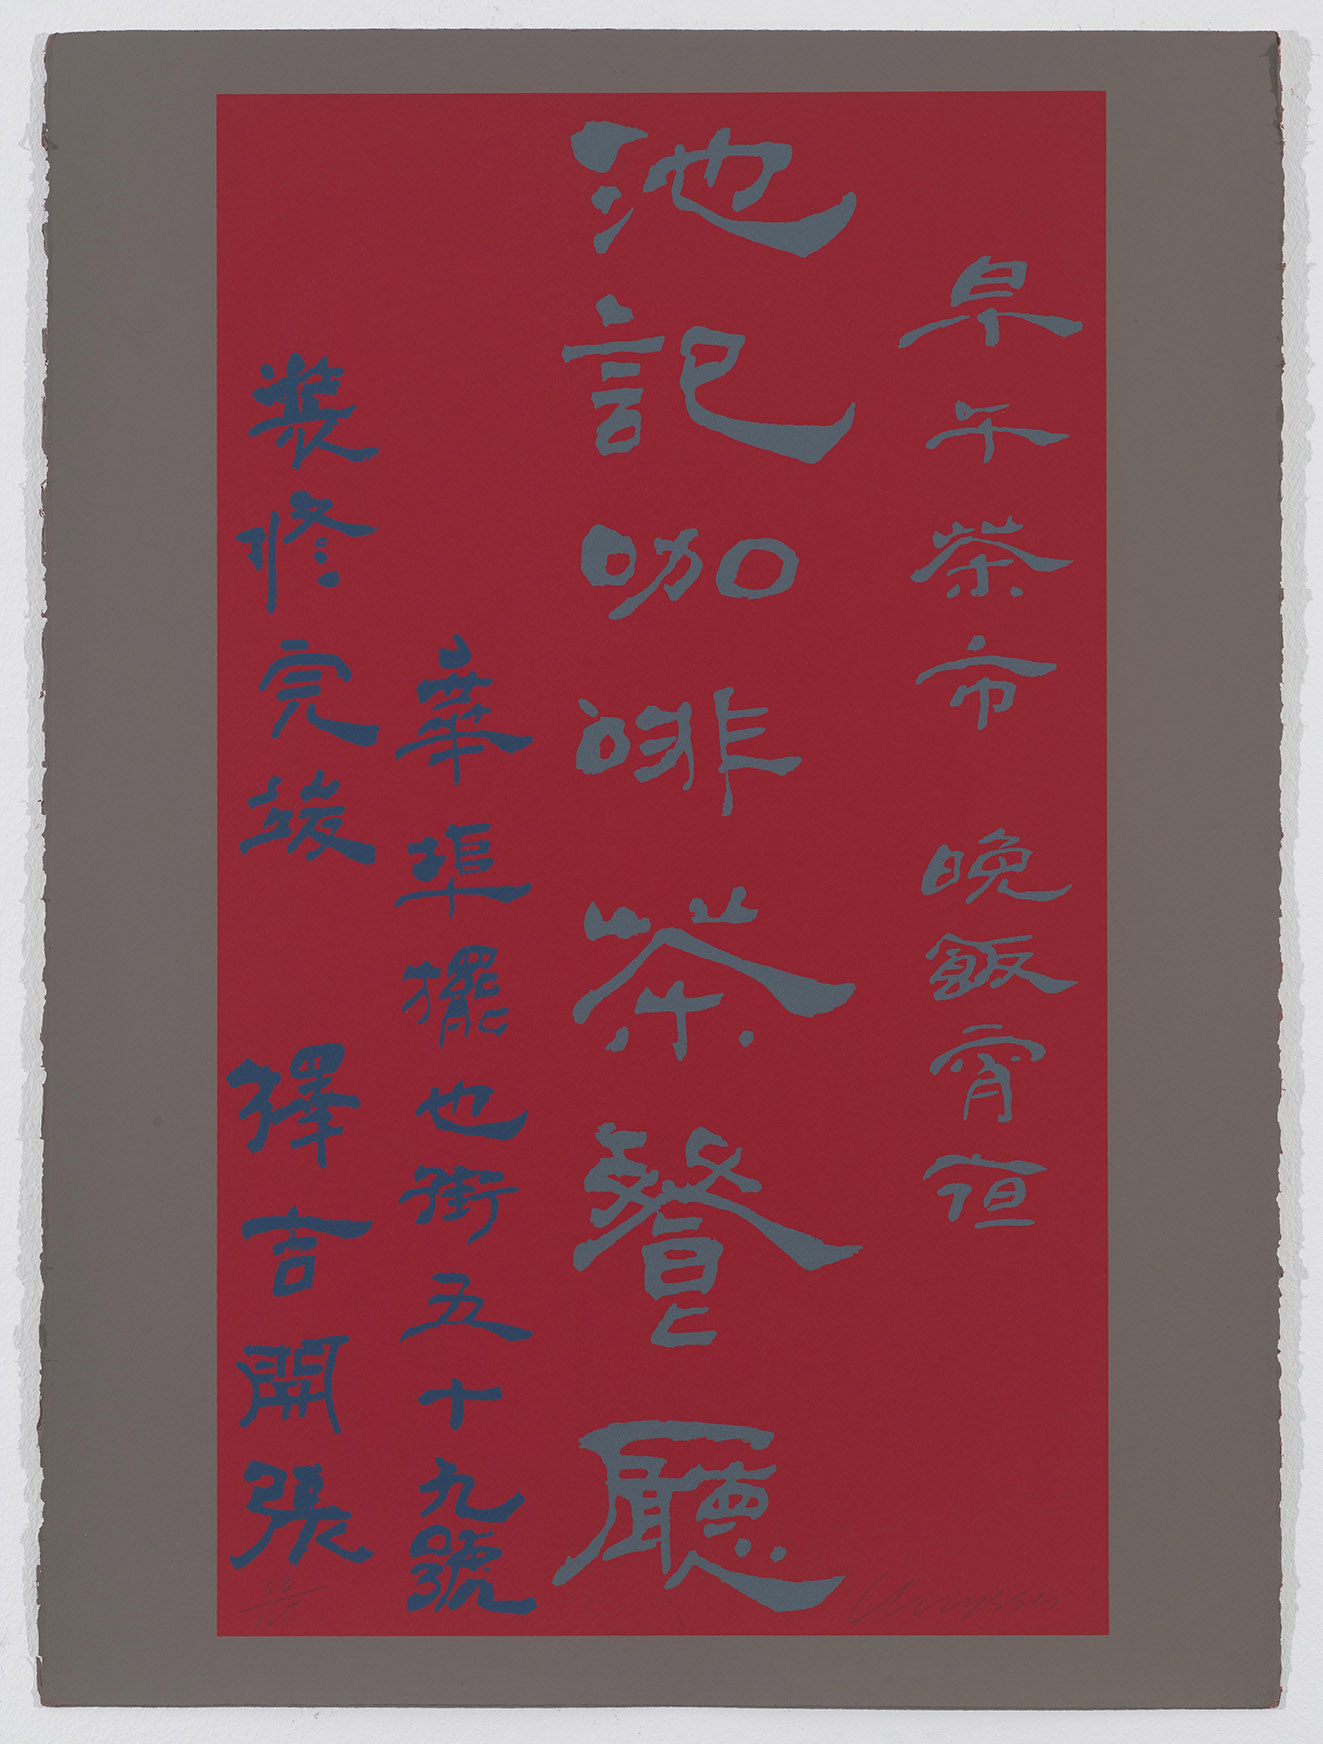 早午茶市 晚飯宵亱
池記咖啡茶餐廳
華埠擺也街五十九號
裝修完竣 擇吉開張
Chryssa